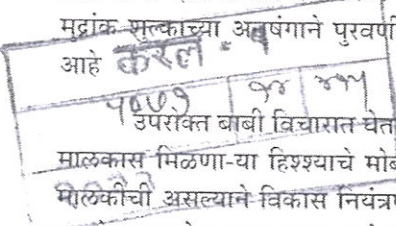 मुद्रांक शुल्काच्या अनुषंगाने पुरवणी
आहे करल - १
५०७७ १४ ४१५
उपरोक्त बाबी विचारात घेता
मालकास मिळणा-या हिश्श्याचे मोब
मालकीची असल्याने विकास नियंत्रण